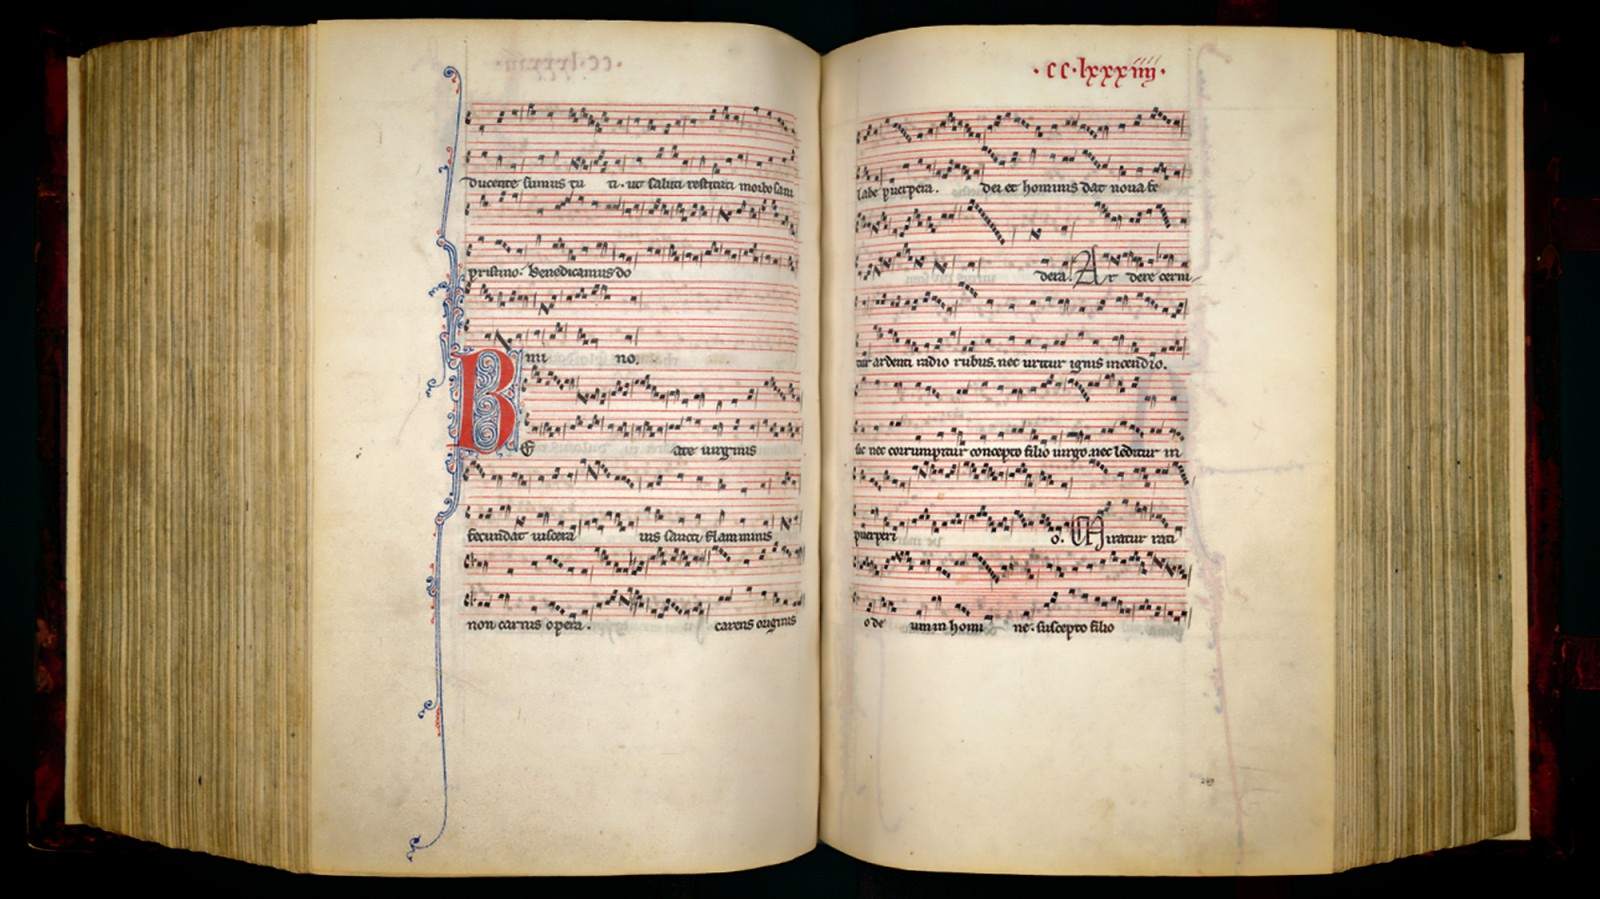 ducente sumus tu ti. ut saluti restituti morbo sani
pristino. Benedicamus do
mi no.
BE ate uirginis
fecundat uiscera uis sancti flaminis
non carnis opera. carens originis
.cc.lxxxiiii.
labe puerpera. dei et hominis dat noua fe
dera. Ar dere cerni
tur ardenti radio rubus. nec uritur ignis incendio.
sic nec corrumpitur concepto filio uirgo. nec leditur in
puerperi o. Miratur rati
o de um in homi ne. suscepto filio
249